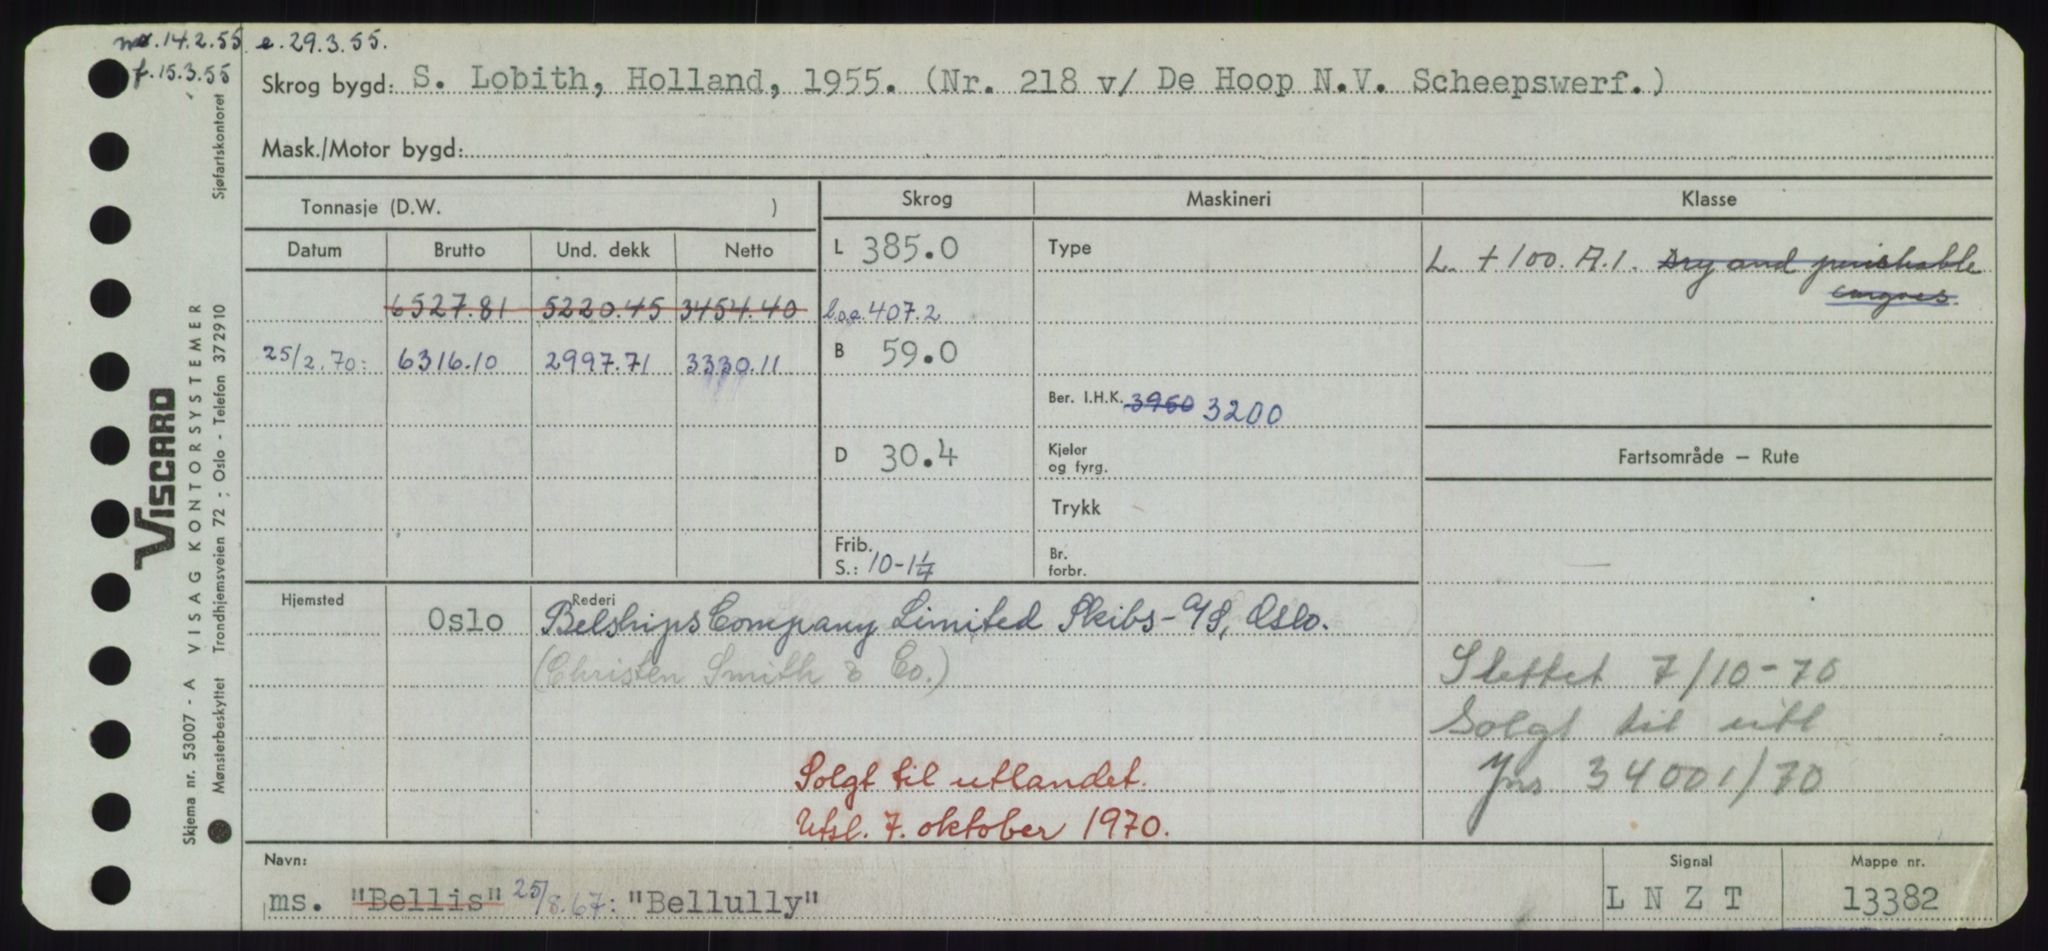 14.2.55 e. 29.3.55.
f. 15.3.55
Skrog bygd: S. Lobith, Holland, 1955. (Nr. 218 v/ De Hoop N.V. Scheepswerf.)
Mask./Motor bygd:
Tonnasje (D.W. )
Skrog Maskineri Klasse
Datum Brutto Und. dekk Netto
L 385.0 Type
L. + 100. A.1. Dry and perishable
cargoes.
6527.81 5220.45 3454.40
l.o.a. 407.2
25/2. 70: 6316.10 2997.71 3330.11
B 59.0
Ber. I.H.K. 3960 3200
D 30.4
Kjeler
og fyrg.
Fartsområde — Rute
Trykk
Frib.
S.: 10-1¼
Br.
forbr.
Hjemsted Rederi
Oslo Belships Company Limited Skibs-A/S, Oslo.
(Christen Smith & Co.)
Slettet 7/10-70
Solgt til utl
Jnr 34001/70
Solgt til utlandet.
Utsl. 7. oktober 1970.
Navn: Signal Mappe nr.
ms. "Bellis" 25/8.67: "Bellully" L N Z T 13382
Skjema nr. 53007 - A VISAG KONTORSYSTEMER
Mønsterbeskyttet Trondhjemsveien 72 ; Oslo - Telefon 372910 Sjøfartskontoret
VISCARD